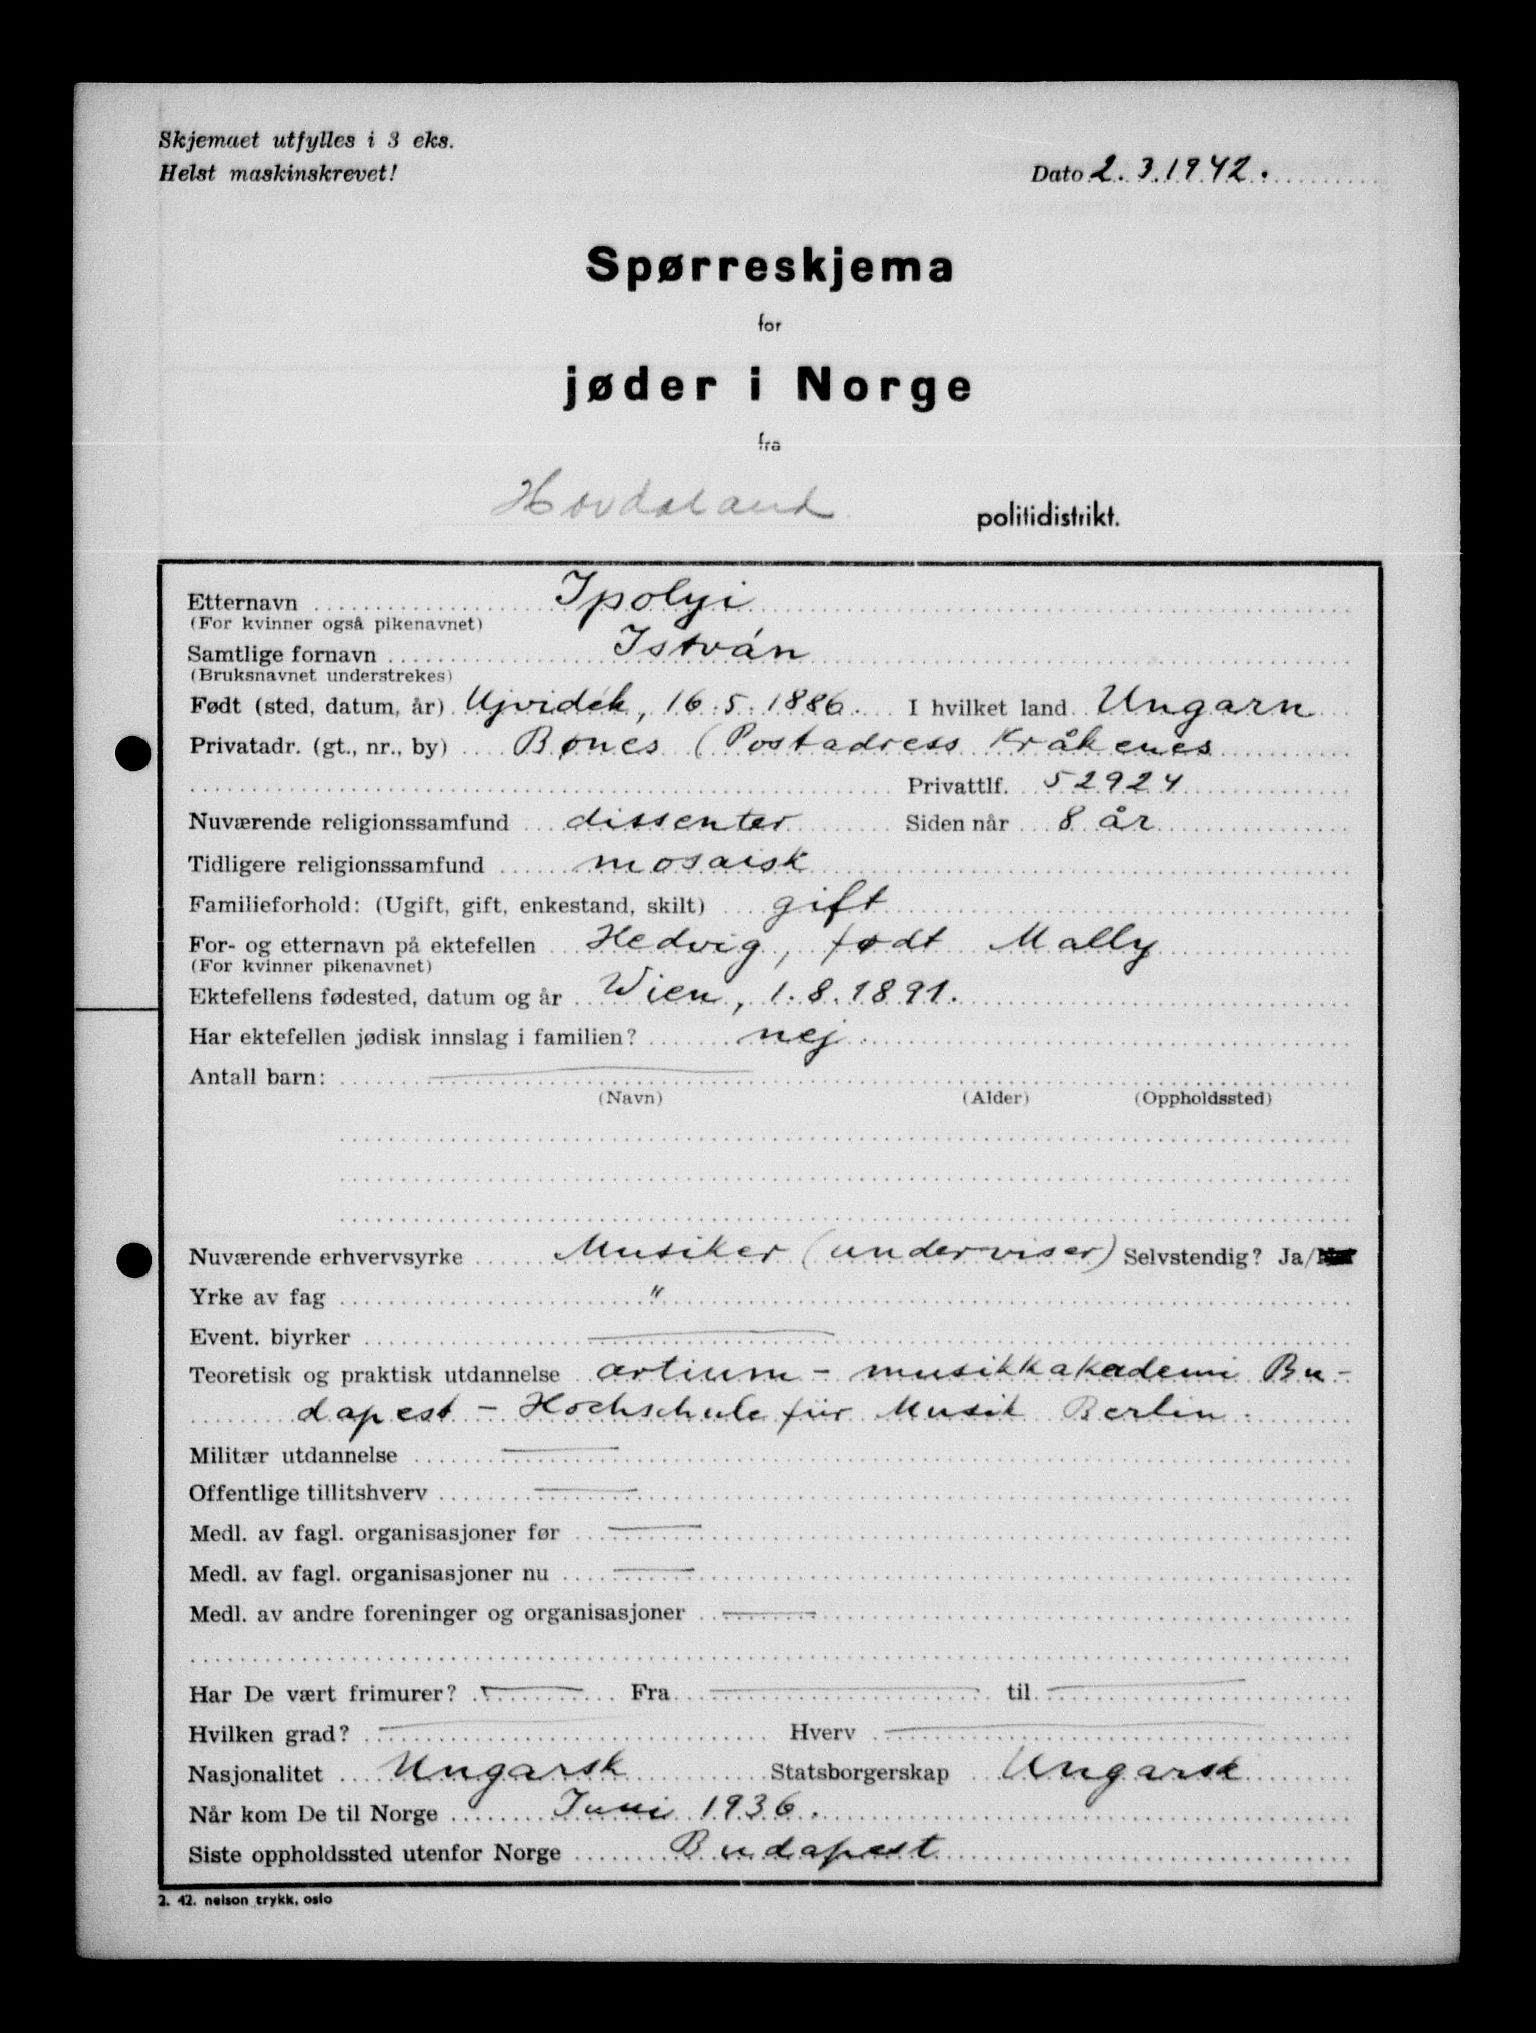 Skjemaet utfylles i 3 eks.
Helst maskinskrevet!
Dato 2.3.1942.
Spørreskjema
for
jøder i Norge
fra
Hordaland politidistrikt.
Etternavn Ipolyi
(For kvinner også pikenavnet)
Samtlige fornavn István
(Bruksnavnet understrekes)
Født (sted, datum, år) Ujvidék, 16.5.1886. I hvilket land Ungarn
Privatadr. (gt., nr., by) Bønes (Postadress Kråkenes
Privattlf. 52924
Nuværende religionssamfund dissenter Siden når 8 år
Tidligere religionssamfund mosaisk
Familieforhold: (Ugift, gift, enkestand, skilt) gift
For- og etternavn på ektefellen Hedvig, født Mally
(For kvinner pikenavnet)
Ektefellens fødested, datum og år Wien, 1.8.1891.
Har ektefellen jødisk innslag i familien? nej.
Antall barn:
(Navn) (Alder) (Oppholdssted)
Nuværende erhvervsyrke Musiker (underviser) Selvstendig? Ja/
Yrke av fag "
Event. biyrker
Teoretisk og praktisk utdannelse artium - musikkakademi Bu-
dapest - Hochschule für Musik Berlin.
Militær utdannelse
Offentlige tillitshverv
Medl. av fagl. organisasjoner før
Medl. av fagl. organisasjoner nu
Medl. av andre foreninger og organisasjoner
Har De vært frimurer? Fra til
Hvilken grad? Hverv
Nasjonalitet Ungarsk Statsborgerskap Ungarsk
Når kom De til Norge Juni 1936.
Siste oppholdssted utenfor Norge Budapest
2. 42. nelson trykk, oslo